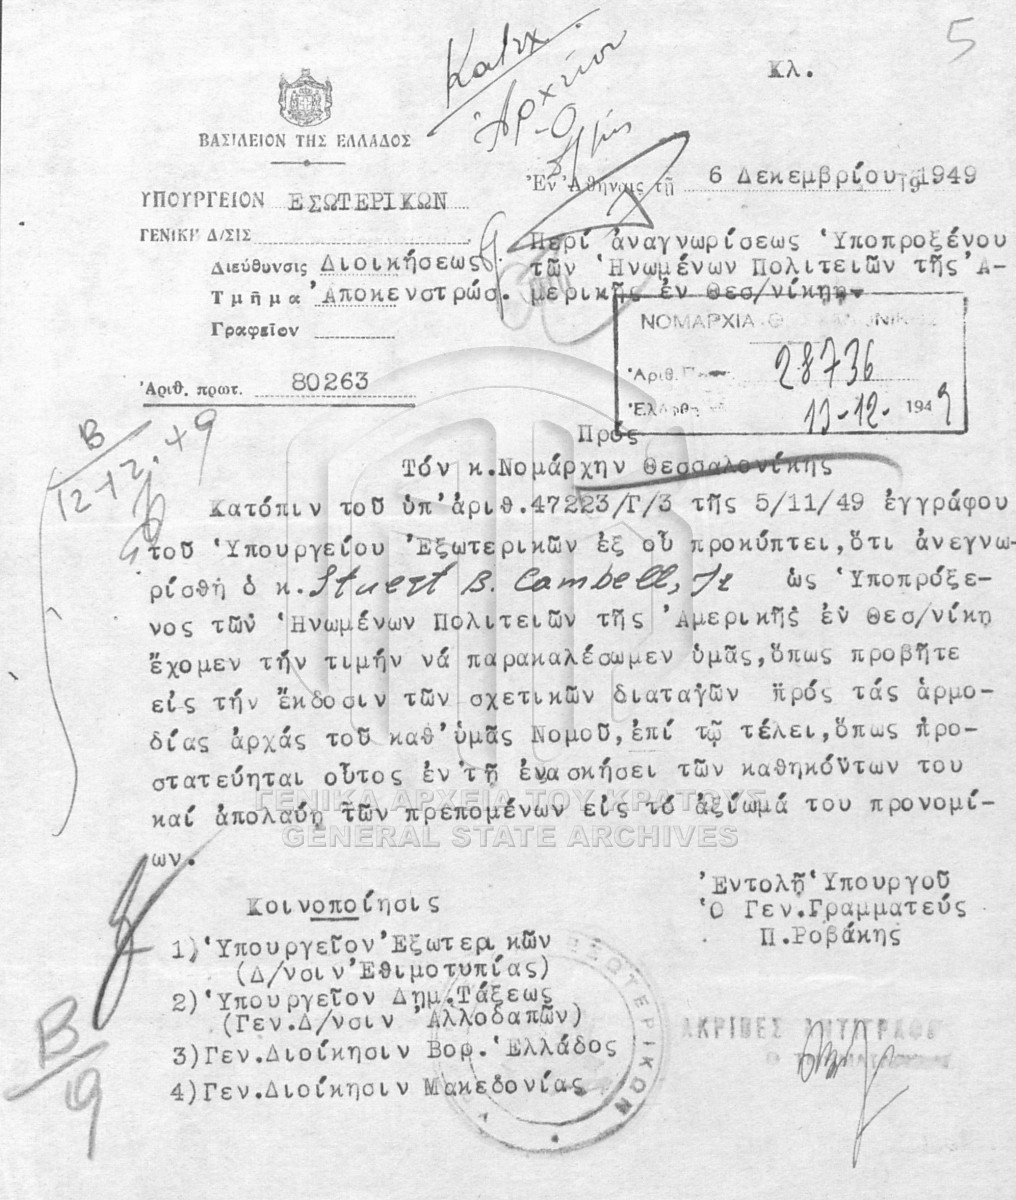 5
Κατεχ.
Ἀρχεῖον
Κλ.
ΒΑΣΙΛΕΙΟΝ ΤΗΣ ΕΛΛΑΔΟΣ
Ἐν Ἀθήναις τῇ 6 Δεκεμβρίου 19 1949
ΥΠΟΥΡΓΕΙΟΝ ΕΣΩΤΕΡΙΚΩΝ
ΓΕΝΙΚΗ Δ/ΣΙΣ
Διεύθυνσις Διοικήσεως
Τμῆμα Ἀποκενστρώσ.
Γραφεῖον
Ἀριθ. πρωτ. 80263
Περί ἀναγνωρίσεως Ὑποπροξένου
τῶν Ἡνωμένων Πολιτειῶν τῆς Ἀ-
μερικῆς ἐν Θεσ/νίκῃ
ΝΟΜΑΡΧΙΑ ΘΕΣΣΑΛΟΝΙΚΗΣ
Ἀριθ. Πρωτ. 28736
Ἐλήφθη 13-12- 1949
Β
12-12-49
Πρός
Τόν κ.Νομάρχην Θεσσαλονίκης
Κατόπιν τοῦ ὑπ'ἀριθ.47223/Γ/3 τῆς 5/11/49 ἐγγράφου
τοῦ Ὑπουργείου Ἐξωτερικῶν ἐξ οὗ προκύπτει,ὅτι ἀνεγνω-
ρίσθη ὁ κ. Stuert B. Cambell, Jr ὡς Ὑποπρόξε-
νος τῶν Ἡνωμένων Πολιτειῶν τῆς Ἀμερικῆς ἐν Θεσ/νίκῃ
ἔχομεν τήν τιμήν νά παρακαλέσωμεν ὑμᾶς,ὅπως προβῆτε
εἰς τήν ἔκδοσιν τῶν σχετικῶν διαταγῶν πρός τάς ἁρμο-
δίας ἀρχάς τοῦ καθ'ὑμᾶς Νομοῦ,ἐπί τῷ τέλει,ὅπως προ-
στατεύηται οὗτος ἐν τῇ ἐνασκήσει τῶν καθηκόντων του
καί ἀπολαύῃ τῶν πρεπομένων εἰς τό ἀξίωμά του προνομί-
ων.
ΓΕΝΙΚΑ ΑΡΧΕΙΑ ΤΟΥ ΚΡΑΤΟΥΣ
GENERAL STATE ARCHIVES
Ἐντολῇ Ὑπουργοῦ
Ὁ Γεν.Γραμματεύς
Π.Ροβάκης
Κοινοποίησις
1)Ὑπουργεῖον Ἐξωτερικῶν
(Δ/νσιν Ἐθιμοτυπίας)
2)Ὑπουργεῖον Δημ.Τάξεως
(Γεν.Δ/νσιν Ἀλλοδαπῶν)
3)Γεν.Διοίκησιν Βορ.Ἑλλάδος
4)Γεν.Διοίκησιν Μακεδονίας
ΕΣΩΤΕΡΙΚΩΝ
ΑΚΡΙΒΕΣ ΑΝΤΙΓΡΑΦΟ
Β/9